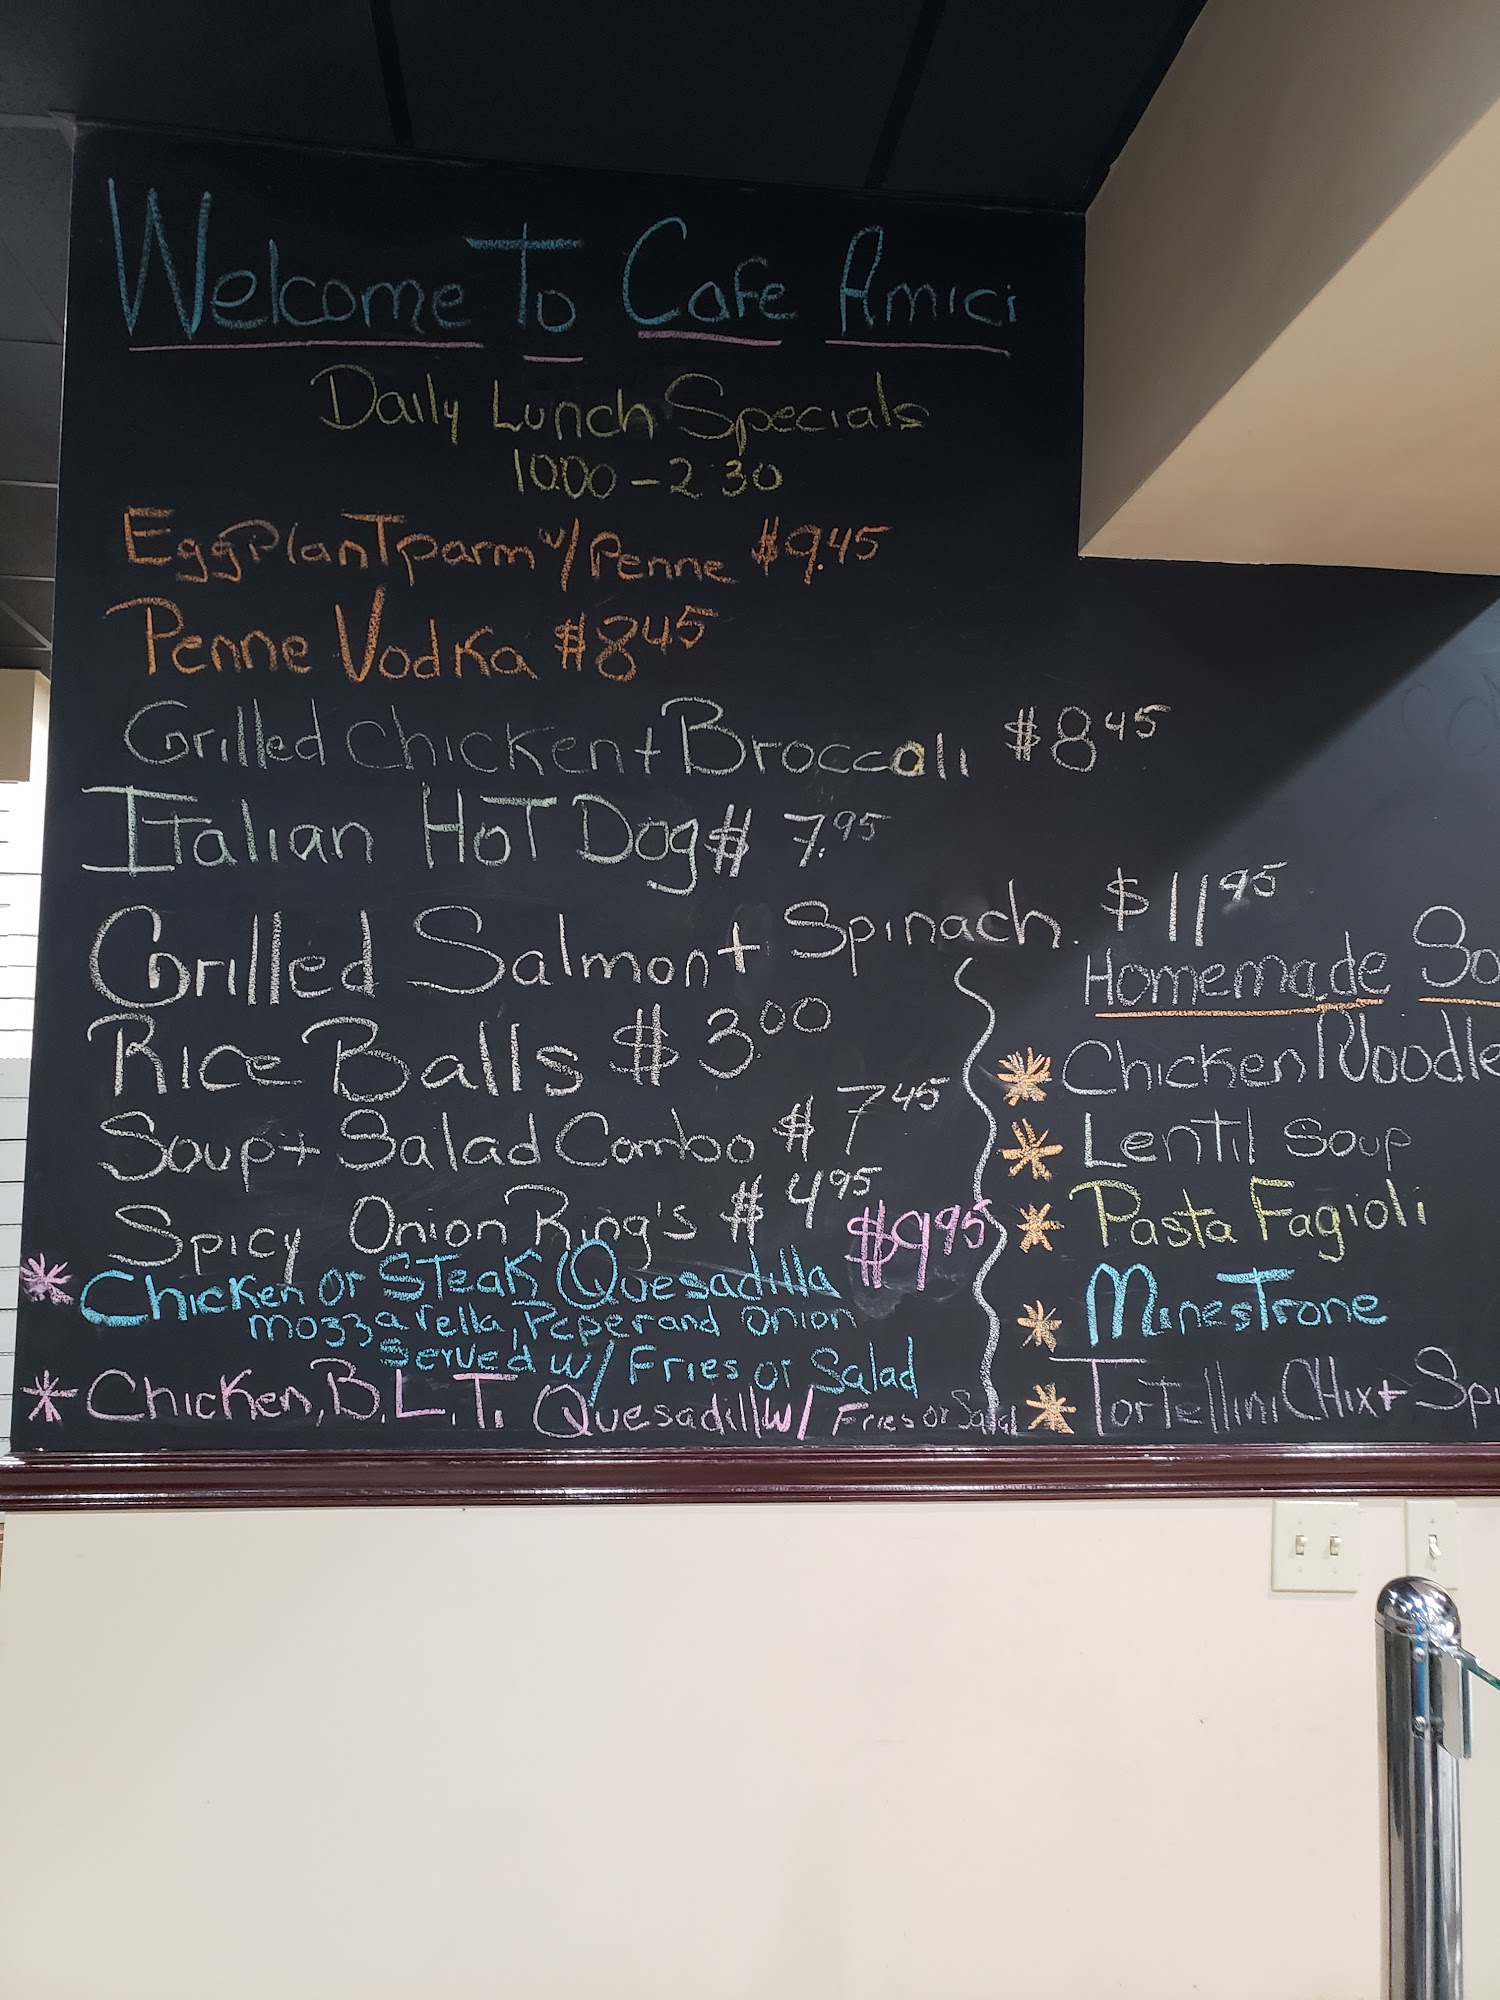 Welcome To Cafe Amici
Daily Lunch Specials
10:00 - 2:30
Eggplant parm w/ Penne $9.45
Penne Vodka $8.45
Grilled Chicken + Broccoli $8.45
Italian Hot Dog $ 7.95
Grilled Salmon + Spinach $11.95
Rice Balls $3.00
Soup + Salad Combo $7.45
Spicy Onion Ring's $4.95
* Chicken or Steak Quesadilla $9.95
mozzarella, Peper and onion
Served w/ Fries or Salad
* Chicken, B.L.T. Quesadill w/ Fries or Salad
Homemade So
* Chicken Noodle
* Lentil Soup
* Pasta Fagioli
* Minestrone
* Tortellini Chix + Spi